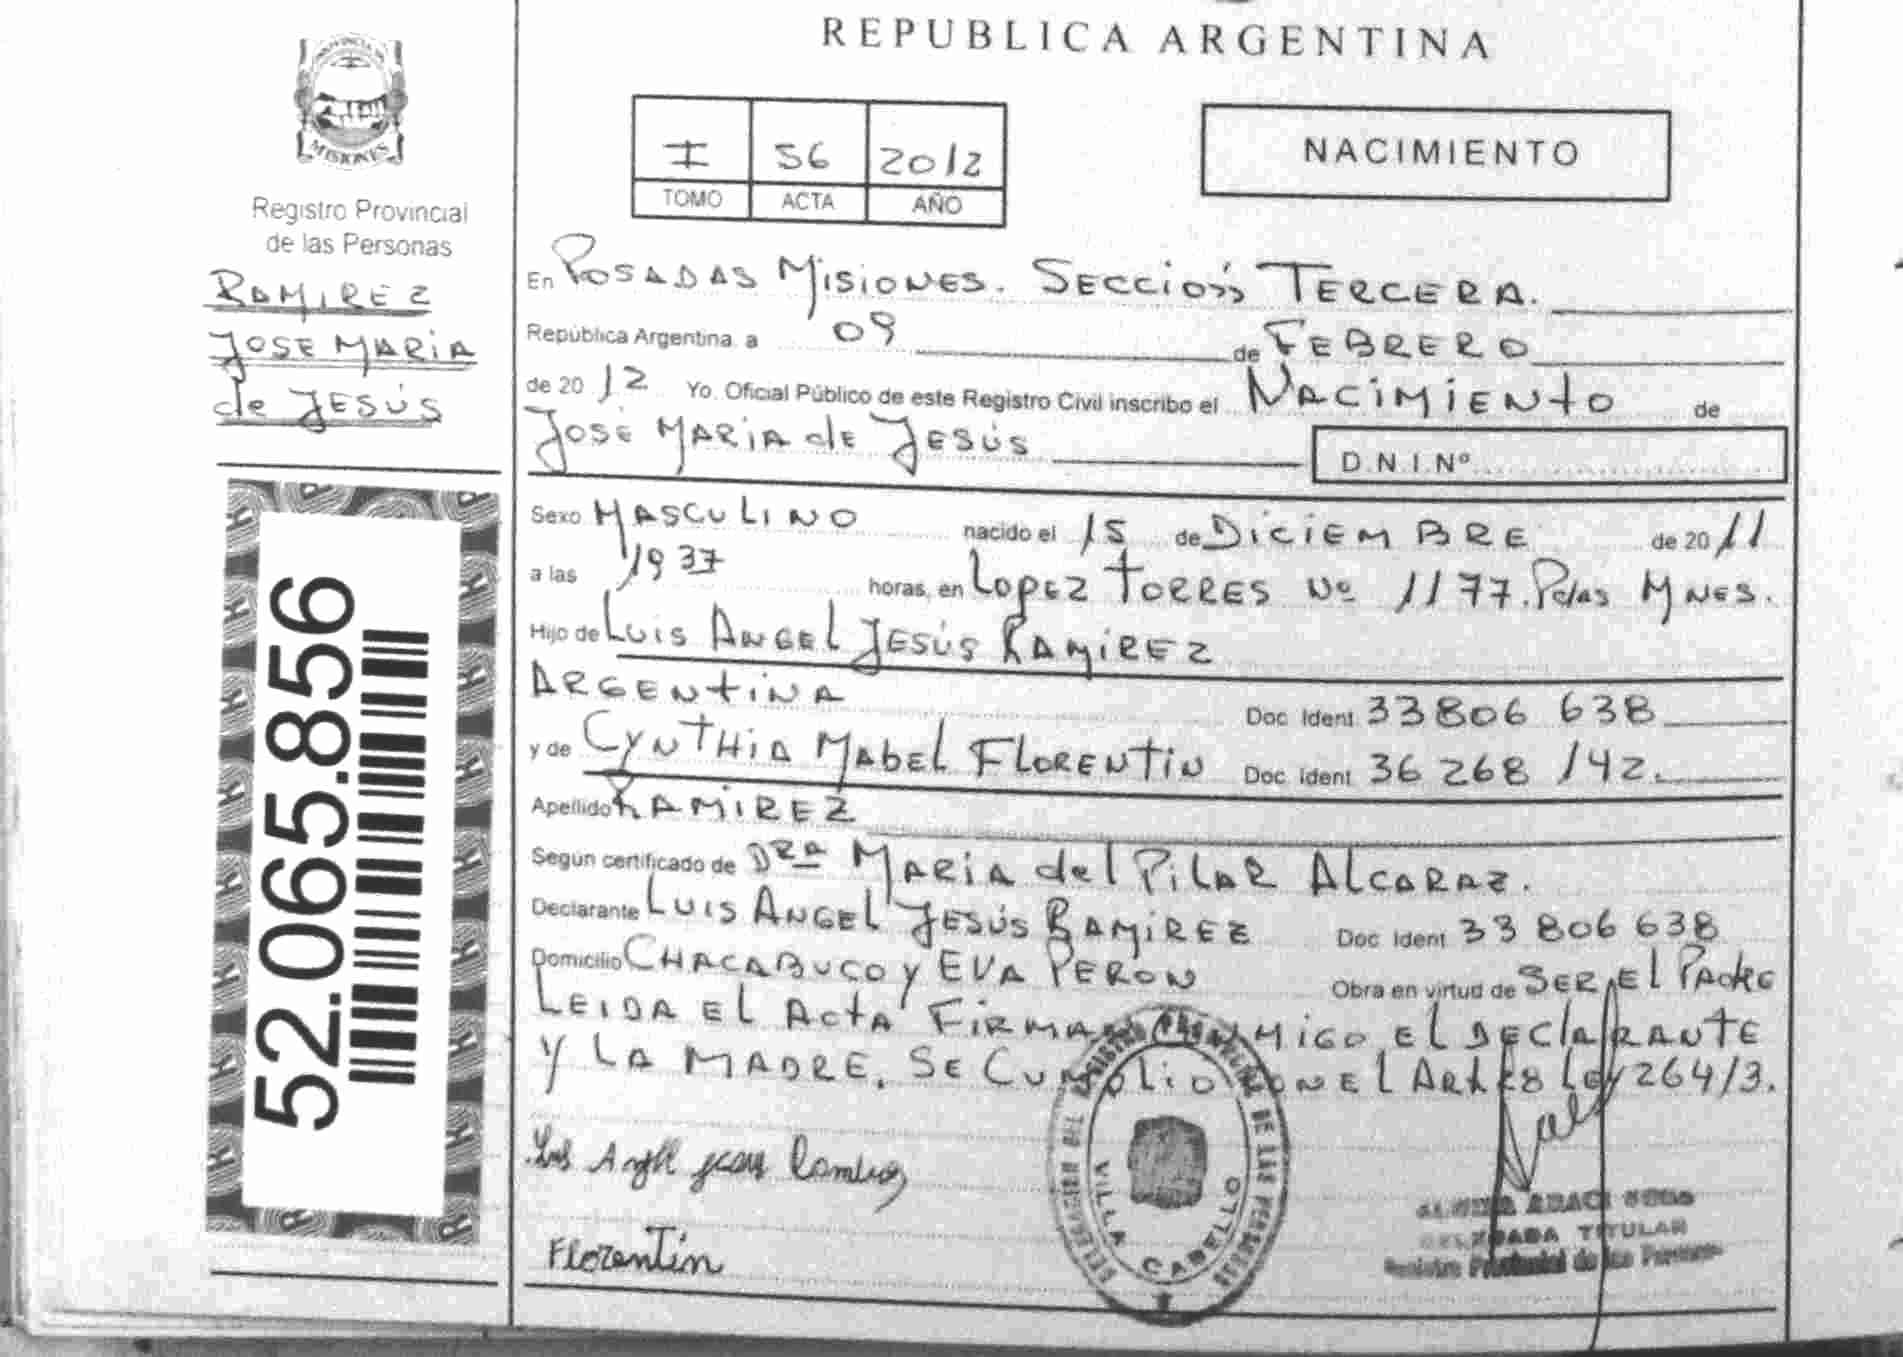 REPUBLICA ARGENTINA
PROVINCIA DE
MISIONES
Registro Provincial
de las Personas
RAMIREZ
JOSE MARIA
de JESÚS
52.065.856
I 56 2012
TOMO ACTA AÑO
NACIMIENTO
En POSADAS MISIONES. SECCIÓN TERCERA.
República Argentina. a 09 de FEBRERO
de 2012 Yo. Oficial Público de este Registro Civil inscribo el NACIMIENTO de
JOSÉ MARIA de JESÚS D.N.I.Nº
Sexo MASCULINO nacido el 15 de DICIEMBRE de 2011
a las 1937 horas, en LOPEZ TORRES Nº 1177. Pdas MNES.
Hijo de LUIS ANGEL JESÚS RAMIREZ
ARGENTINA Doc Ident 33806 638
y de CYNTHIA MABEL FLORENTIN Doc. Ident 36 268 142.
Apellido RAMIREZ
Según certificado de DRA MARIA del PILAR ALCARAZ.
Declarante LUIS ANGEL JESÚS RAMIREZ Doc Ident 33 806 638
Domicilio CHACABUCO y EVA PERON Obra en virtud de SER El PADRE
LEIDA EL ACTA FIRMAN MIGO El DECLARANTE
Y LA MADRE. SE CUMPLIO CON El Ley 26413.
Florentin
VILLA CABELLO
TITULAR
Registro Provincial de las Personas